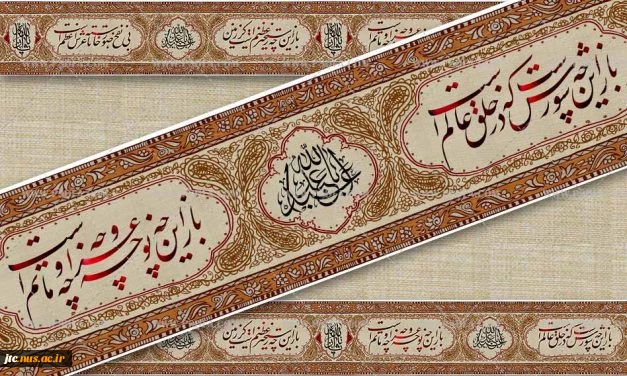 باز این چه رستخیز عظیم است کز زمین
بی نفخ صور خاسته تا عرش اعظم است
باز این چه شورش است که در خلق عالم است
یا اباعبدالله
باز این چه نوحه و چه عزا و چه ماتم است
باز این چه شورش است که در خلق عالم است
باز این چه نوحه و چه عزا و چه ماتم است
باز این چه رستخیز عظیم است کز زمین
jtc.nus.ac.ir